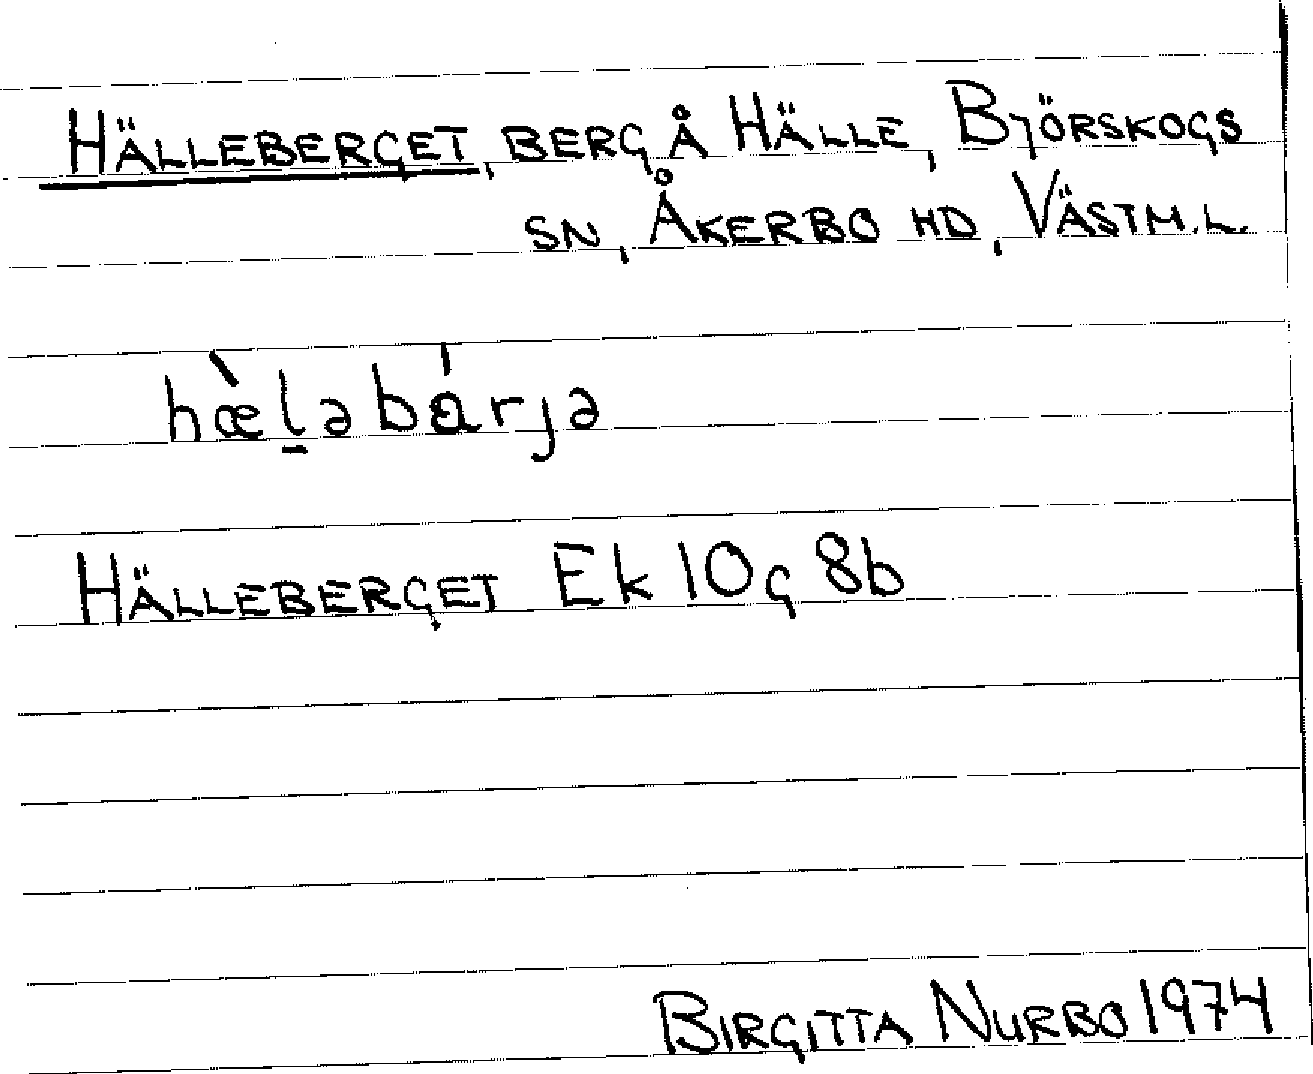 HÄLLEBERGET, BERG Å HÄLLE, BJÖRSKOGS
SN, ÅKERBO HD, VÄSTM.L.
hæ̀l̠əbárjə
HÄLLEBERGET Ek 10g 8b
BIRGITTA NURBO 1974